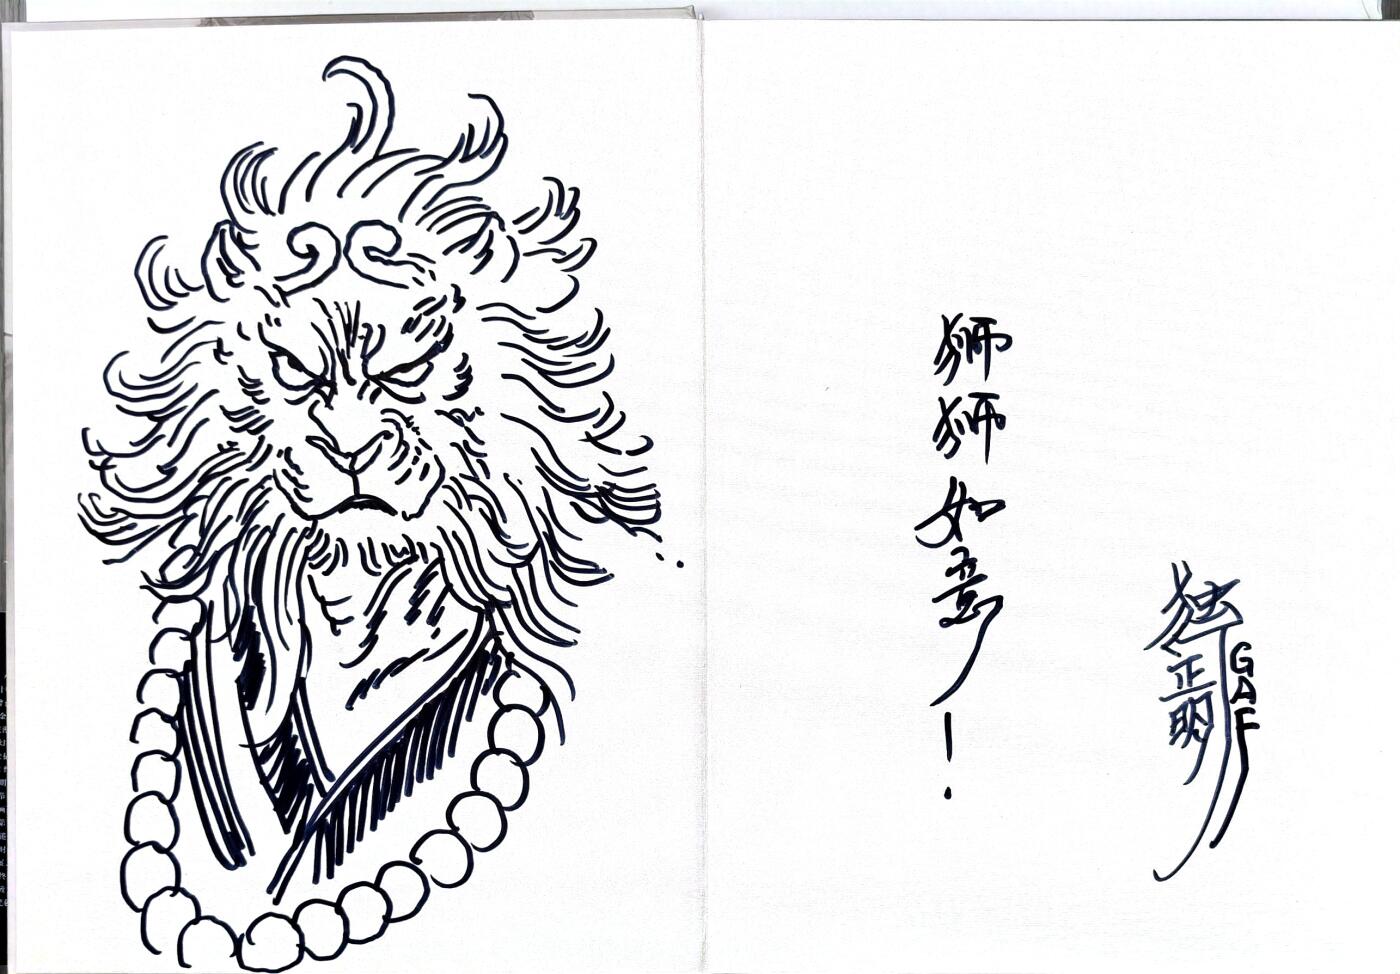 狮狮如意！
正明
GAF